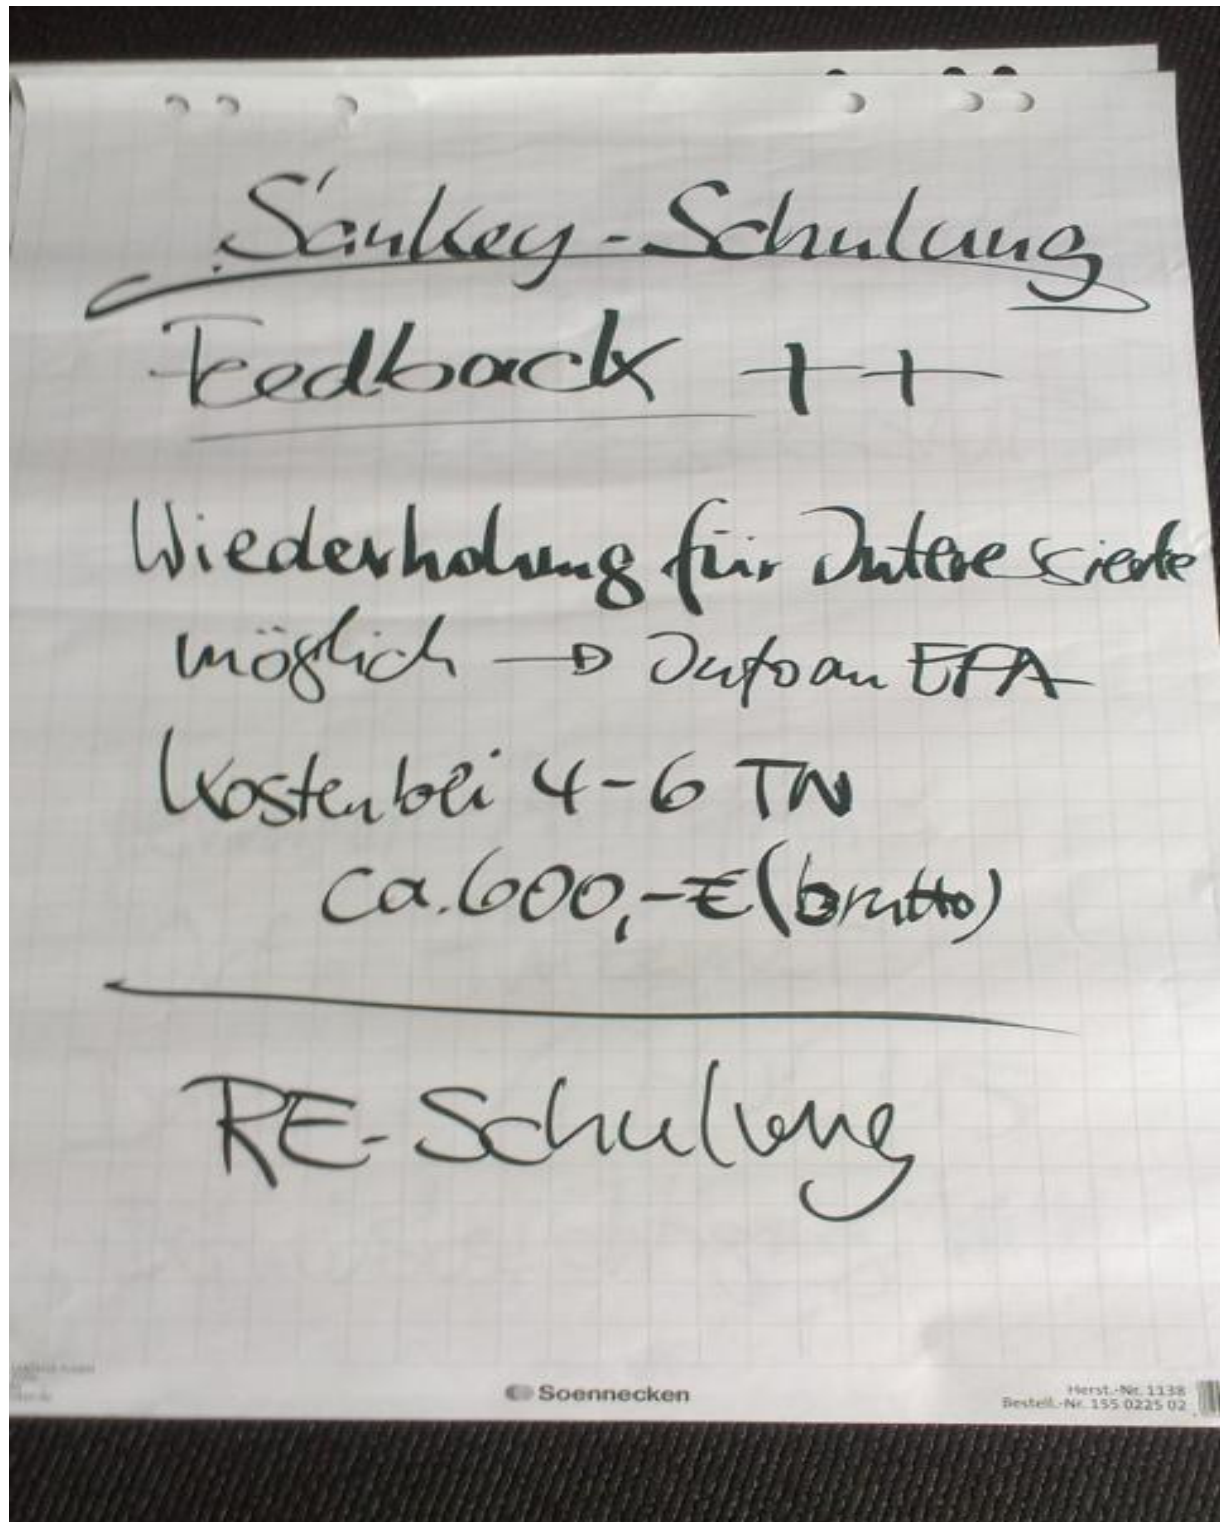 Sankey-Schulung
Feedback ++
Wiederholung für Interessierte
möglich → Info an EFA
Kosten bei 4-6 TN
ca. 600,-€ (brutto)
RE-Schulung
Soennecken
Herst.-Nr. 1138
Bestell.-Nr. 155 0225 02